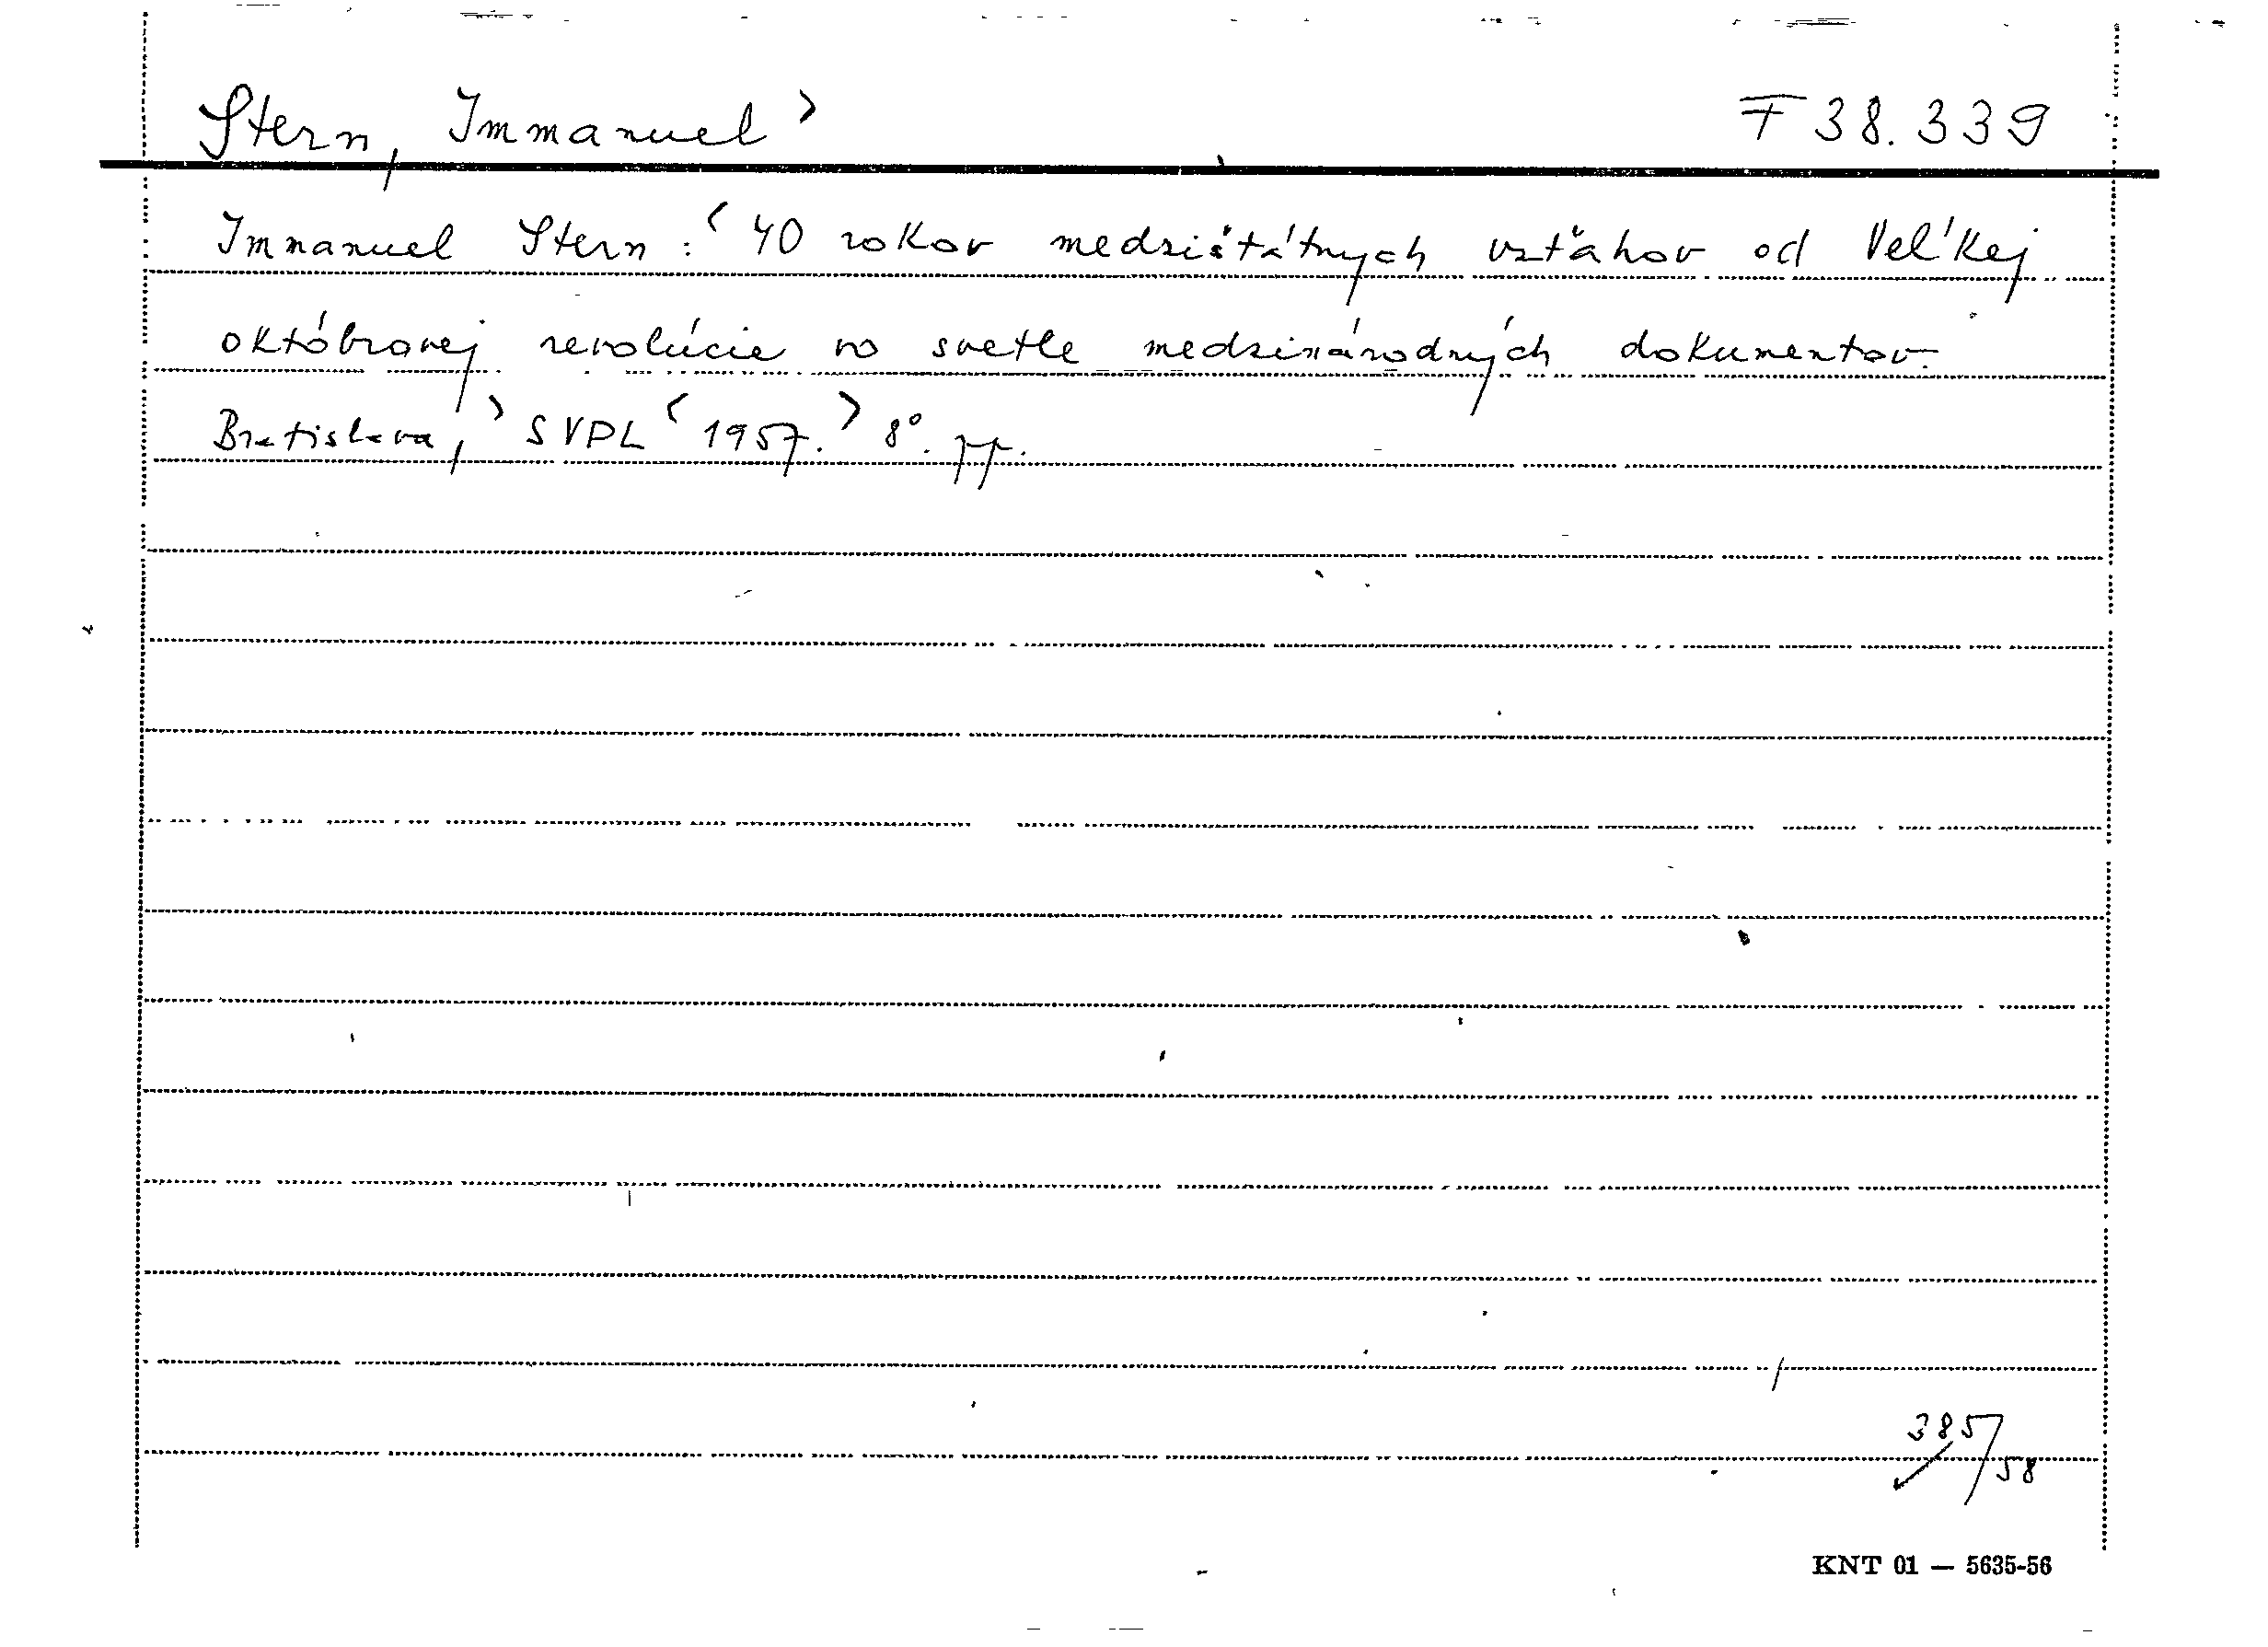 Stern, Immanuel > F 38.339
Immanuel Stern: < 40 rokov medzištátnych vzťahov od Veľkej
októbrovej revolúcie vo svetle medzinárodných dokumentov.
Bratislava, > SVPL < 1957. > 8°. pp.
385/58
KNT 01 — 5635-56